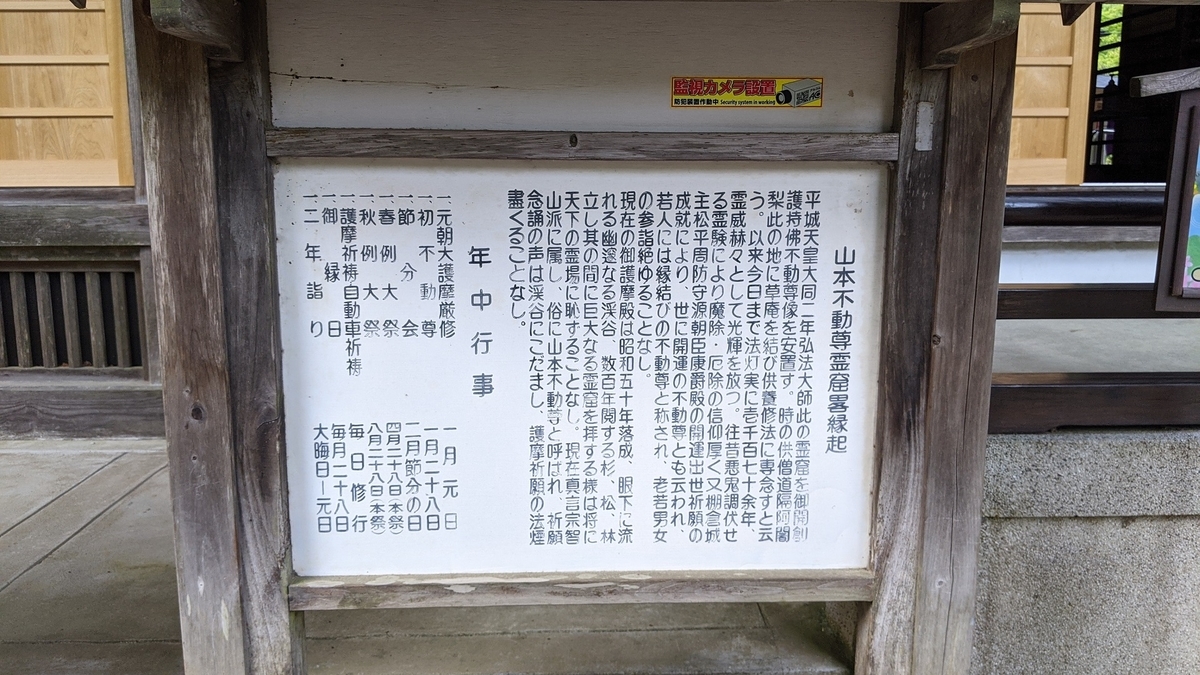 監視カメラ設置
防犯装置作動中 Security system in working
山本不動尊霊窟畧縁起
平城天皇大同二年弘法大師此の霊窟を御開創
護持佛不動尊像を安置す。時の供僧道隔阿闍
梨此の地に草庵を結び供養修法に専念すと云
う。以来今日まで法灯実に壱千百七十余年、
霊威赫々として光輝を放つ。往昔悪鬼調伏せ
る霊験により魔除・厄除の信仰厚く又棚倉城
主松平周防守源朝臣康爵殿の開運出世祈願の
成就により、世に開運の不動尊とも云われ、
若人には縁結びの不動尊と称され、老若男女
の参詣絶ゆることなし。
現在の御護摩殿は昭和五十年落成、眼下に流
れる幽邃なる渓谷、数百年閲する杉、松、林
立し其の間に巨大なる霊窟を拝する様は将に
天下の霊場に恥することなし。現在真言宗智
山派に属し、俗に山本不動尊と呼ばれ、祈願
念誦の声は渓谷にこだまし、護摩祈願の法煙
盡くることなし。
年中行事
一、元朝大護摩厳修 一月元日
一、初不動尊 一月二十八日
一、節分会 二月節分の日
一、春例大祭 四月二十八日(本祭)
一、秋例大祭 八月二十八日(本祭)
一、護摩祈祷自動車祈祷 毎日修行
一、御縁日 毎月二十八日
一、二年詣り 大晦日－元日